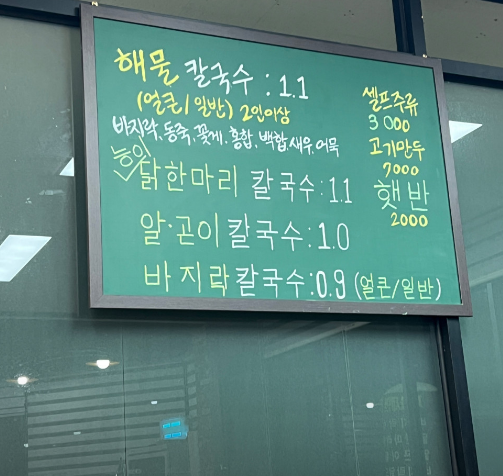 해물 칼국수 : 1.1
(얼큰/일반) 2인이상
바지락, 동죽, 꽃게, 홍합, 백합, 새우, 어묵
닭한마리 칼국수 : 1.1
알·곤이 칼국수 : 1.0
바지락 칼국수 : 0.9 (얼큰/일반)
셀프주류
3000
고기만두
7000
햇반
2000